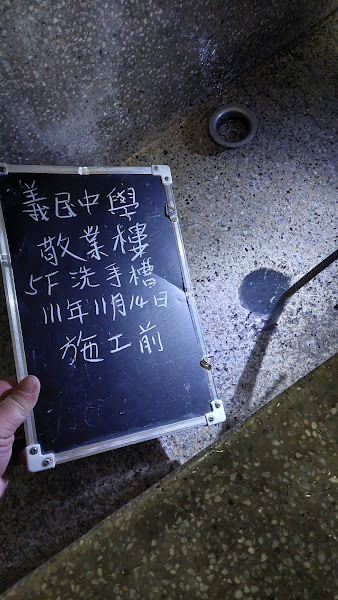 義民中學
敬業樓
5F洗手槽
111年11月14日
施工前